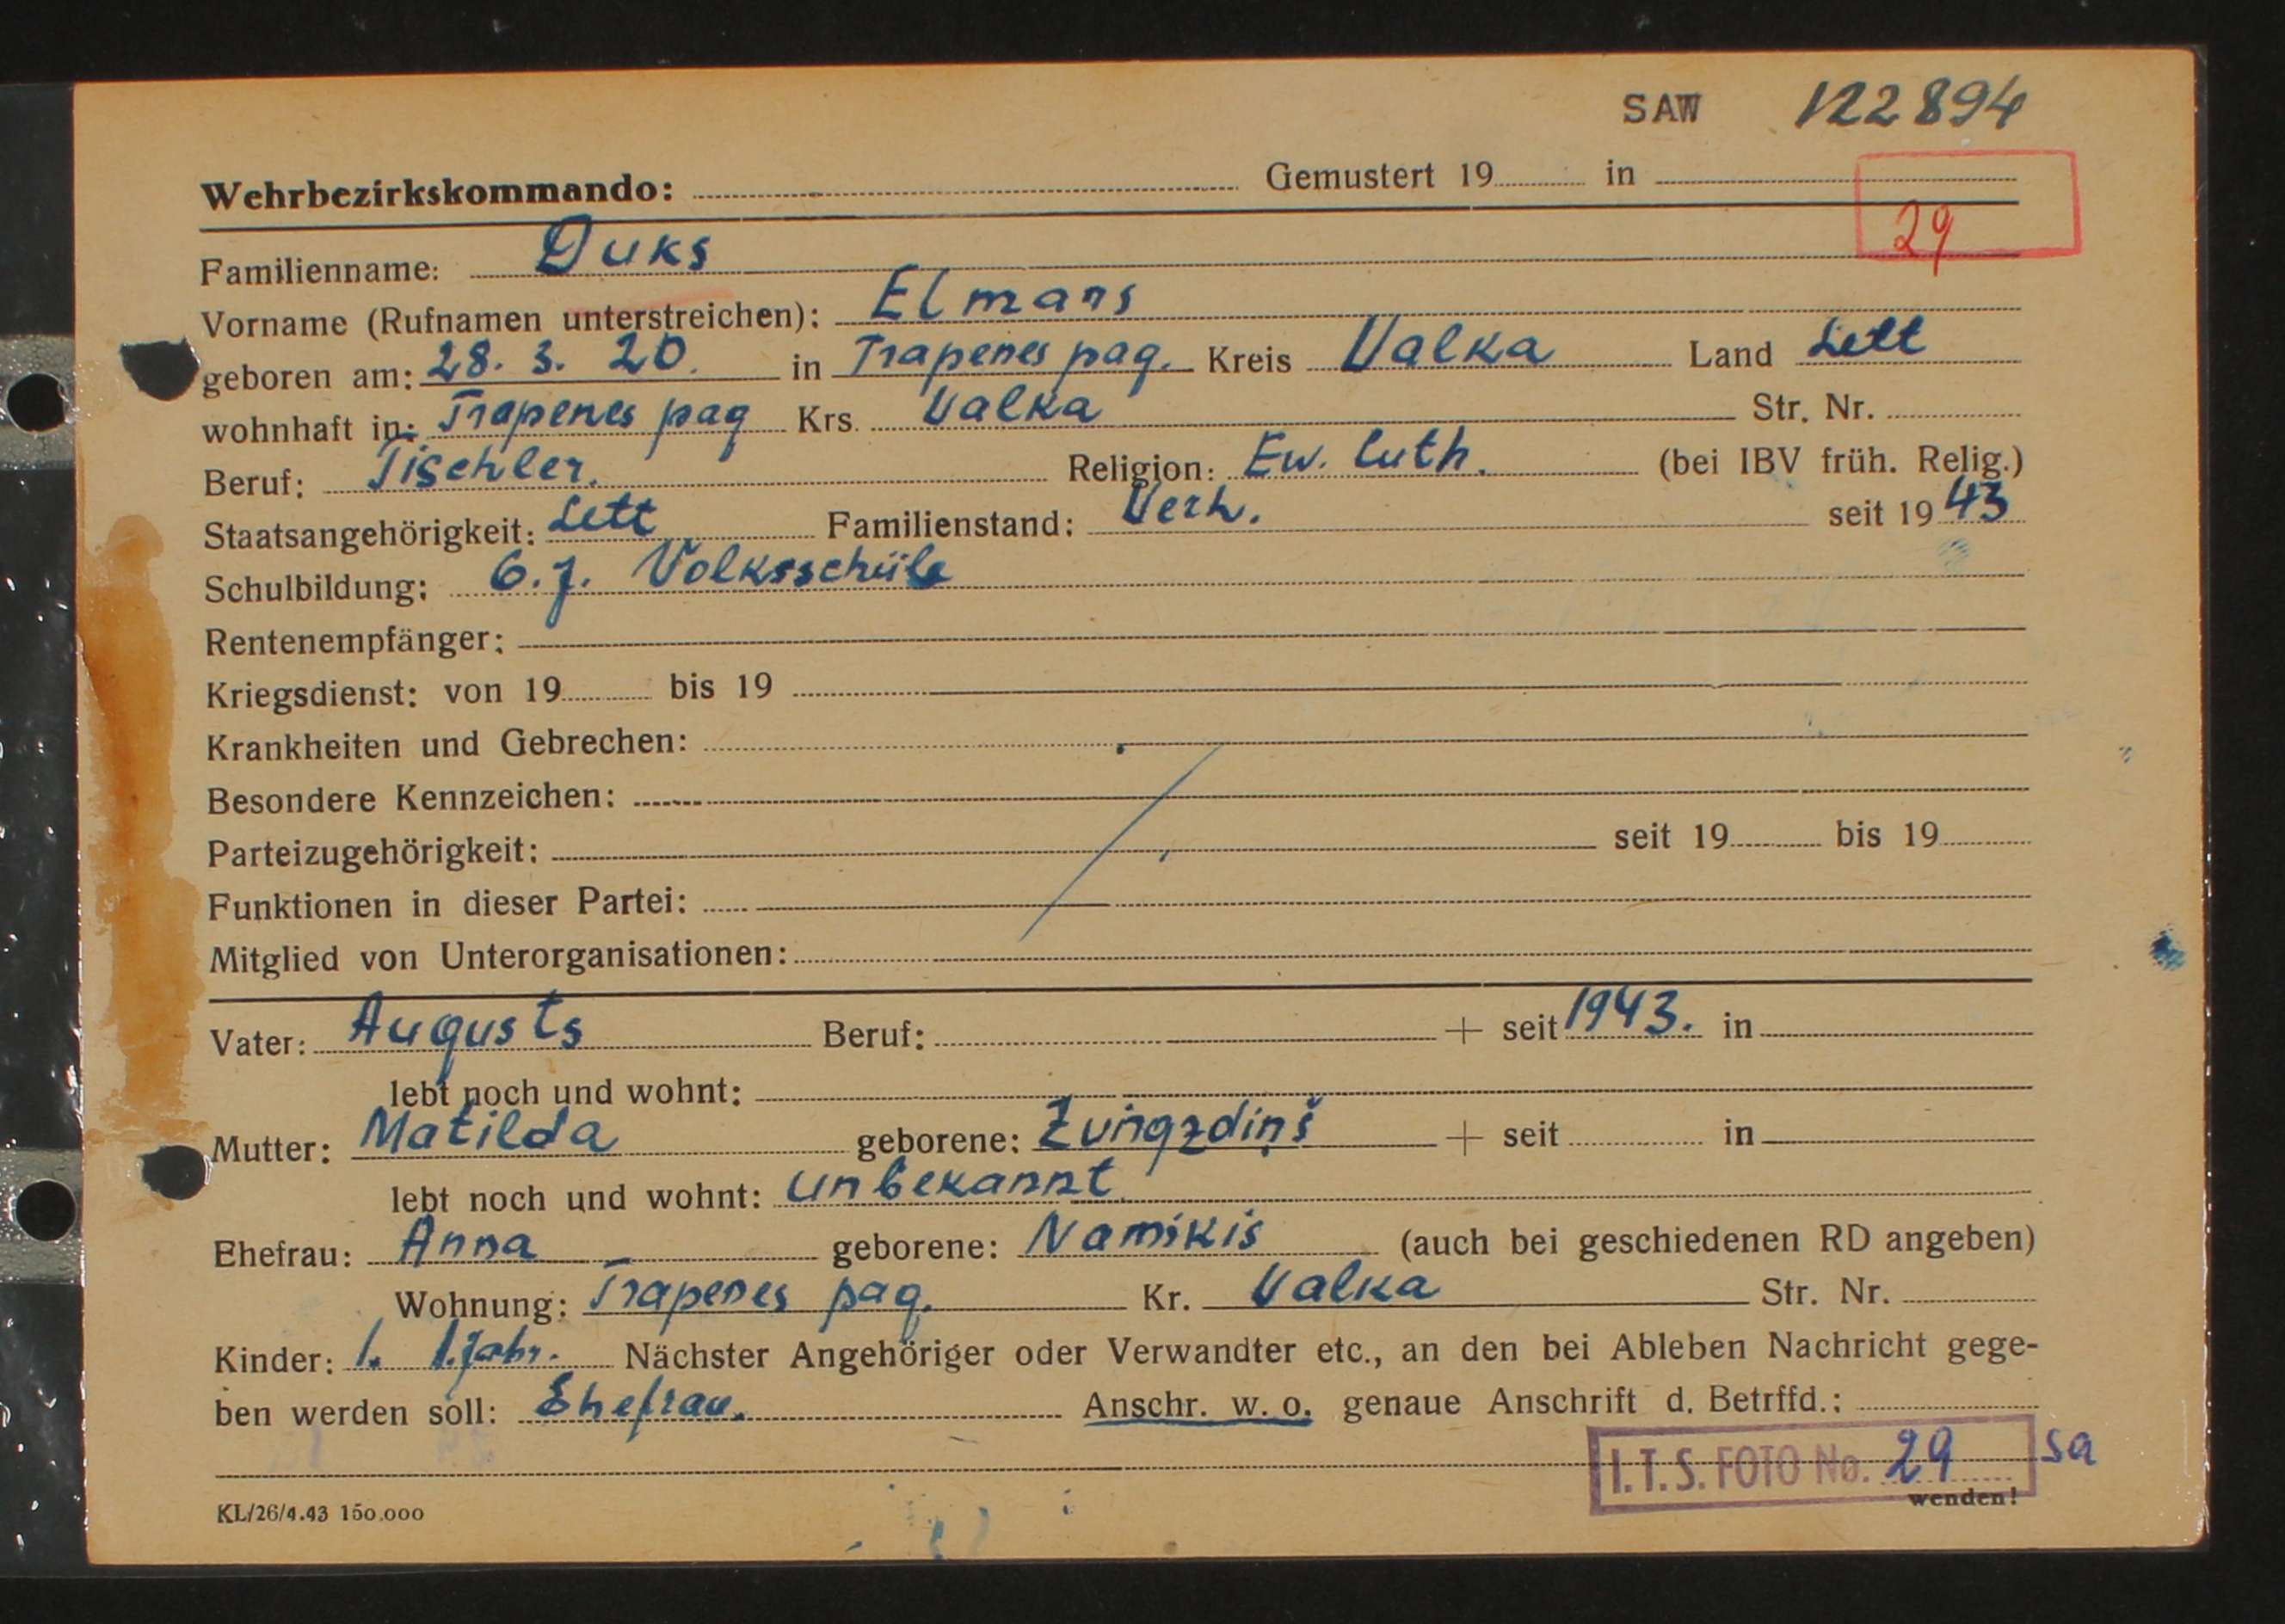 SAW 122894
Wehrbezirkskommando: Gemustert 19 in
29
Familienname: Duks
Vorname (Rufnamen unterstreichen): Elmars
geboren am: 28. 3. 20. in Trapenes pag. Kreis Valka Land Lett
wohnhaft in: Trapenes pag Krs. Valka Str. Nr.
Beruf: Tischler. Religion: Ew. luth. (bei IBV früh. Relig.)
Staatsangehörigkeit: Lett Familienstand: Verh. seit 1943
Schulbildung: 6. j. Volksschüle
Rentenempfänger:
Kriegsdienst: von 19 bis 19
Krankheiten und Gebrechen:
Besondere Kennzeichen:
Parteizugehörigkeit: seit 19 bis 19
Funktionen in dieser Partei:
Mitglied von Unterorganisationen:
Vater: Augusts Beruf: + seit 1943. in
lebt noch und wohnt:
Mutter: Matilda geborene: + seit in
lebt noch und wohnt: unbekannt
Ehefrau: Anna geborene: Namikis (auch bei geschiedenen RD angeben)
Wohnung: Trapenes pag. Kr. Valka Str. Nr.
Kinder: 1. 1. Jahr. Nächster Angehöriger oder Verwandter etc., an den bei Ableben Nachricht gege-
ben werden soll: Ehefrau. Anschr. w. o. genaue Anschrift d. Betrffd.:
I.T.S. FOTO No. 29 sa
wenden!
KL/26/4.43 150.000